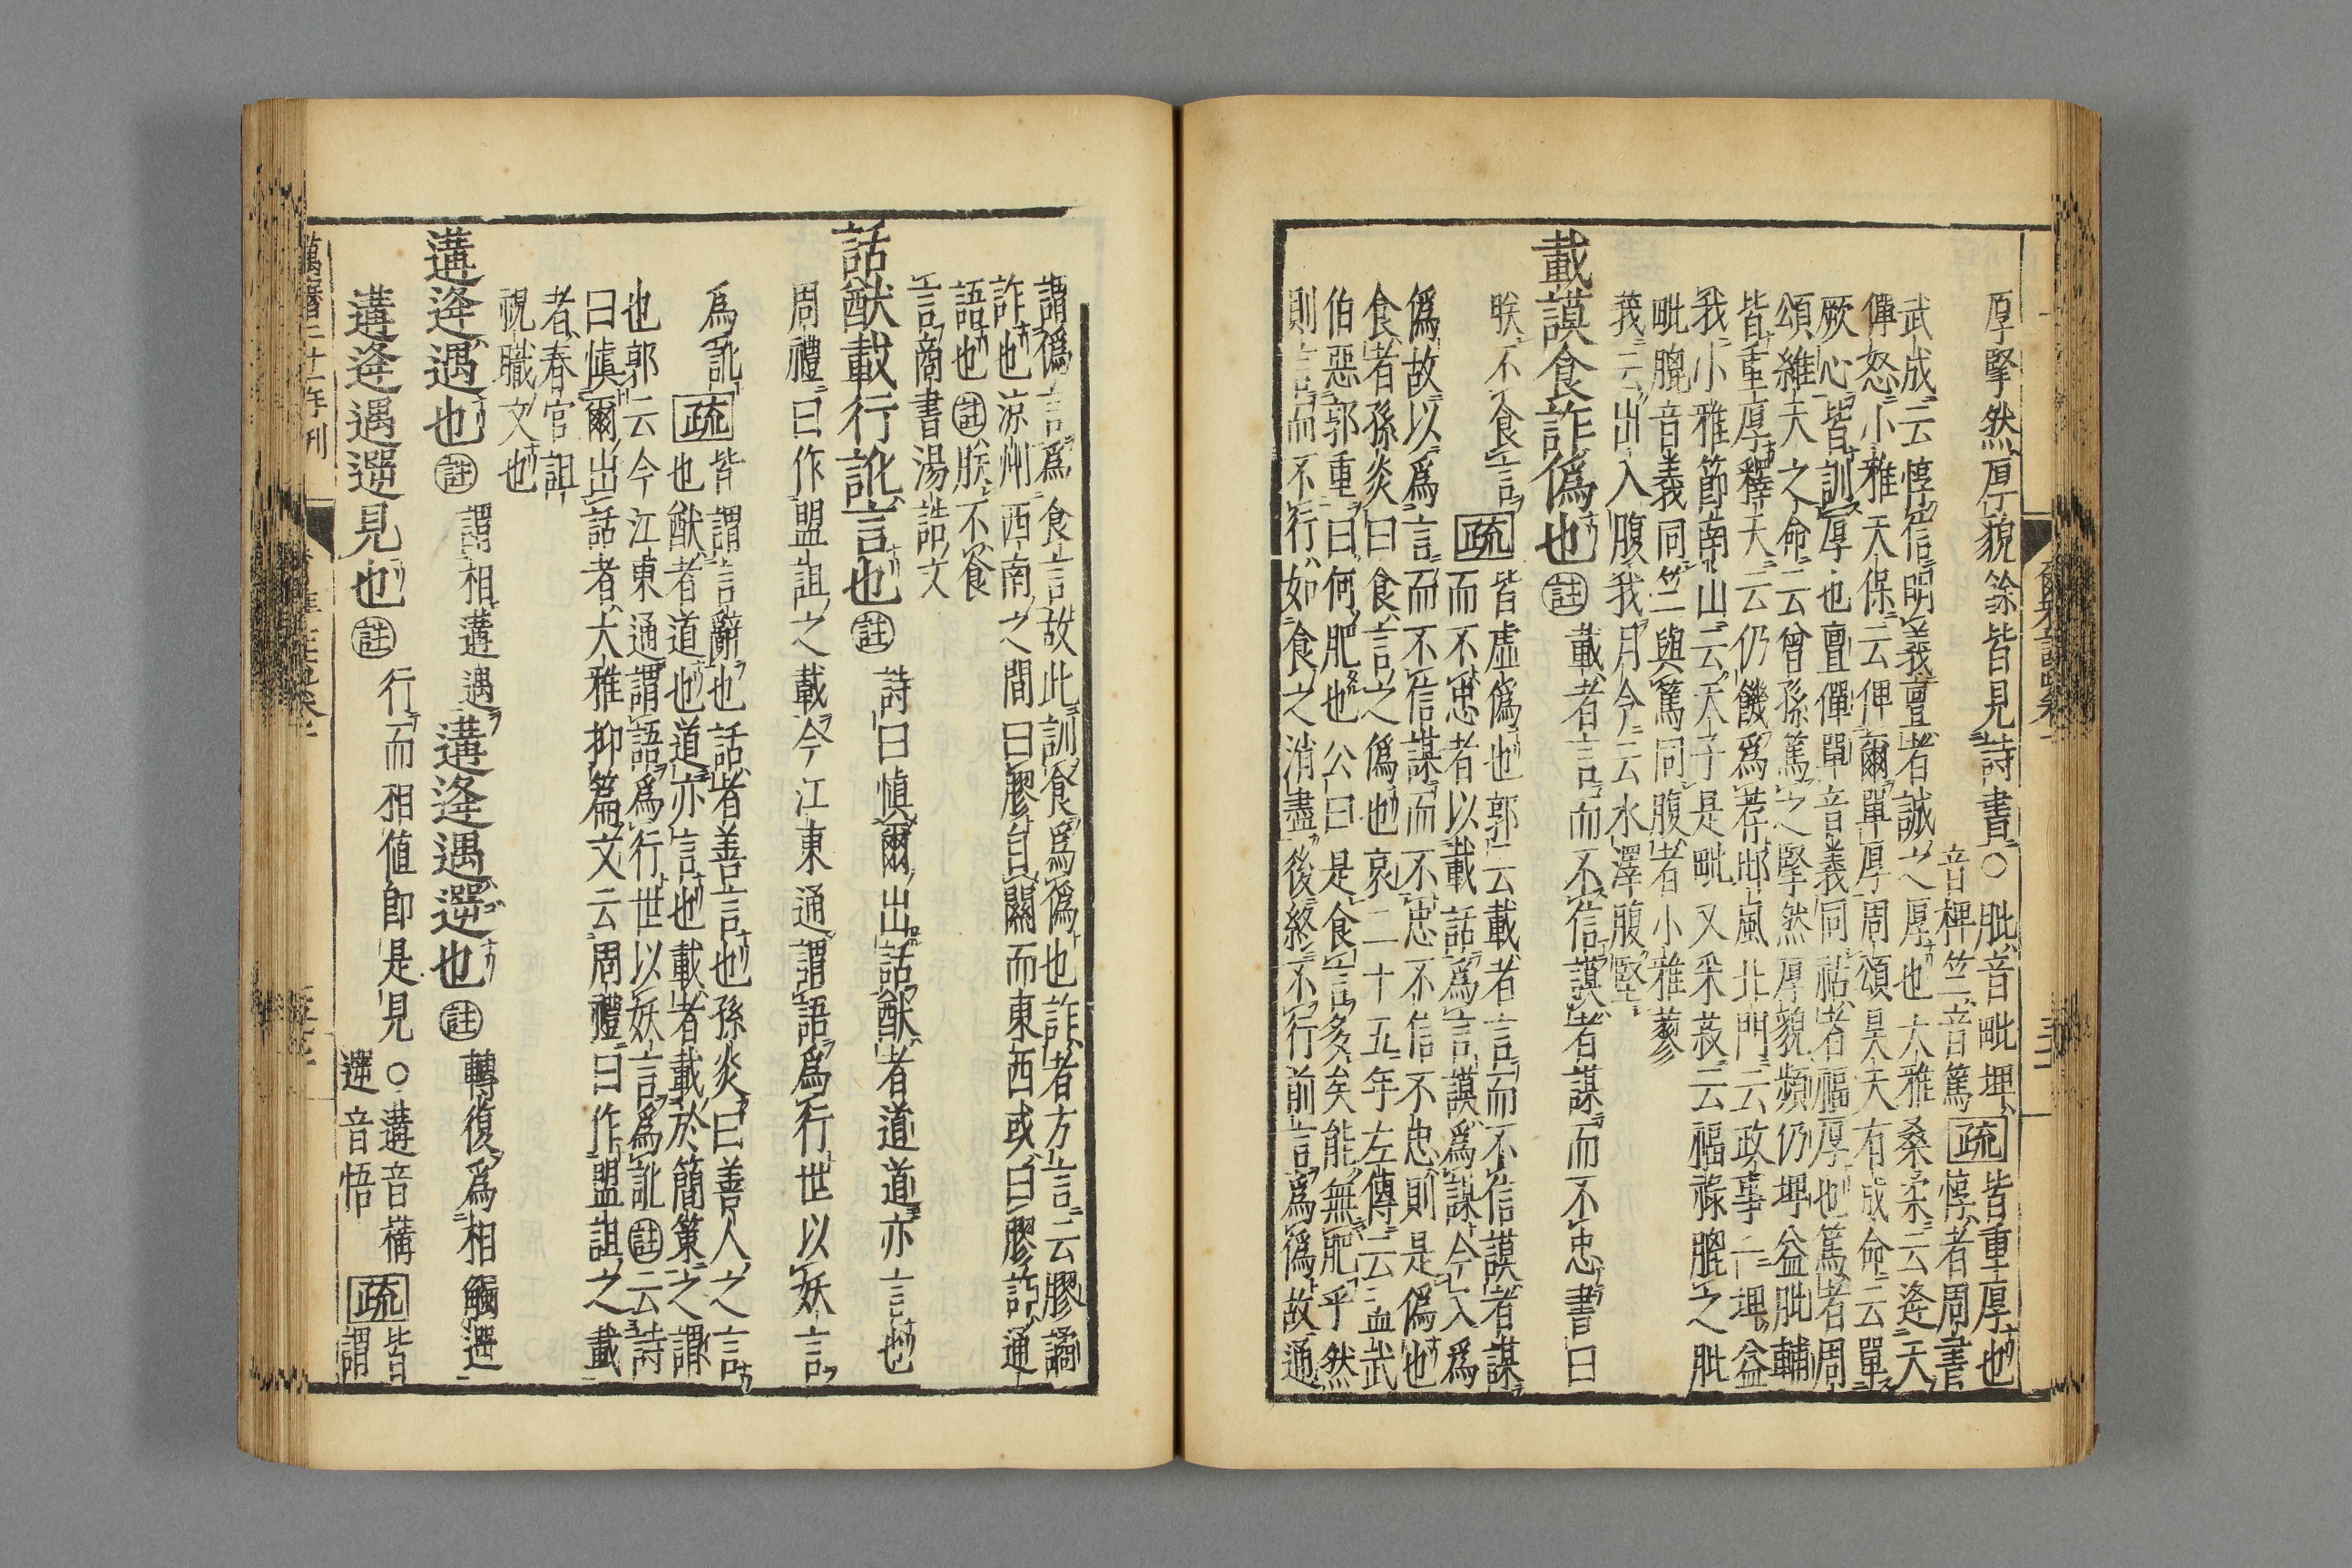 厚掔然厚貌餘皆見詩書○肶音毗埤
音稗竺音篤疏皆重厚也
惇者周書
武成云惇信明義亶者誠之厚也大雅桑柔云逢天
僤怒小雅天保云俾爾單厚周頌昊天有成命云單
厥心皆訓厚也亶僤單音義同祜者福厚也篤者周
頌維天之命云曾孫篤之掔然厚貌頻仍埤益肶輔
皆重厚釋天云仍饑爲荐邶風北門云政事一埤益
我小雅節南山云天子是毗又采菽云福祿膍之肶
毗膍音義同竺與篤同腹者小雅蓼
莪云出入腹我月令云水澤腹堅
載謨食詐僞也註載者言而不信謨者謀而不忠書曰
朕不食言疏皆虛僞也郭云載者言而不信謨者謀
而不忠者以載話爲言謨爲謀今入爲
僞故以爲言而不信謀而不忠不信不忠則是僞也
食者孫炎曰食言之僞也哀二十五年左傳云孟武
伯惡郭重曰何肥也公曰是食言多矣能無肥乎然
則言而不行如食之消盡後終不行前言爲僞故通
謂僞言爲食言故此訓食爲僞也詐者方言云膠譎
詐也涼州西南之間曰膠自關而東西或曰膠詐通
語也註朕不食
言商書湯誥文
話猷載行訛言也註詩曰愼爾出話猷者道道亦言也
周禮曰作盟詛之載今江東通謂語爲行世以妖言
爲訛疏皆謂言辭也話者善言也孫炎曰善人之言
也猷者道也道亦言也載者載於簡策之謂
也郭云今江東通謂語爲行世以妖言爲訛註云詩
曰愼爾出話者大雅抑篇文云周禮曰作盟詛之載
者春官詛
祝職文也
遘逢遇也註謂相遘遇遘逢遇遻也註轉復爲相觸遻
遘逢遇遻見也註行而相値卽是見○遘音構
遻音悟疏皆
謂